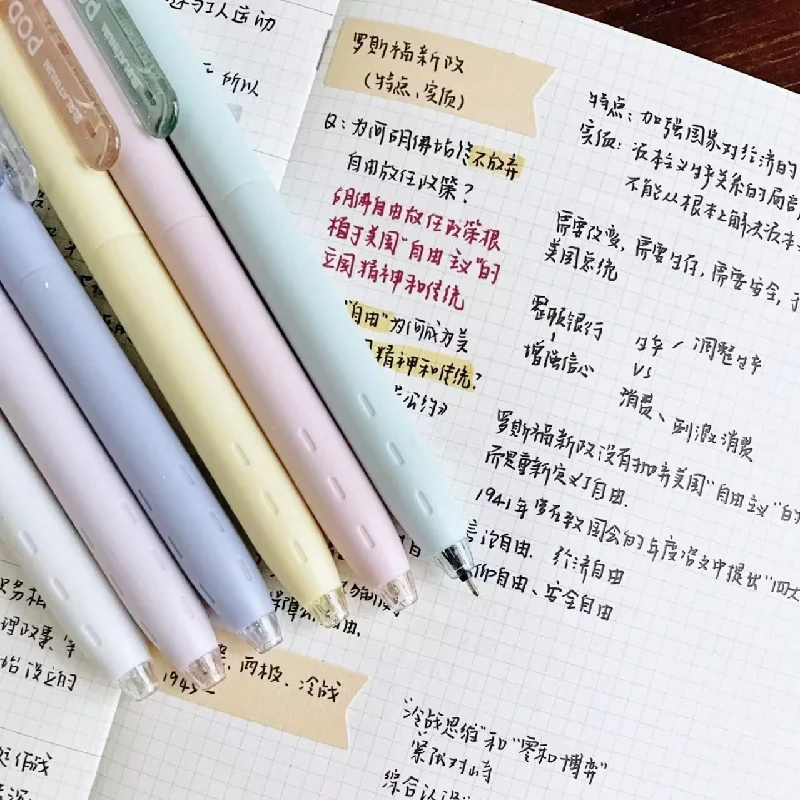 与工人运动
所以
罗斯福新政
(特点、实质)
Q: 为何胡佛始终不放弃
自由放任政策?
胡佛自由放任政策根
植于美国"自由主义"的
立国精神和传统
"自由"为何成为美
精神和传统?
公约》
障公 自由.
两极、冷战
1945
特点: 加强国家对经济的
实质: 资本主义生产关系的局部
不能从根本上解决资本主
需要改变, 需要生存, 需要安全,
美国总统
整顿银行
增强信心
生产 / 调整生产
VS
消费、刺激消费
罗斯福新政没有抛弃美国"自由主义"的
而是重新定义了自由.
1941年罗在致国会的年度咨文中提出"四大
言论自由. 经济自由
仰自由、安全自由
"冷战思维"和"零和博弈"
紧张对峙
综合认识
务机
理政策.
始设立的
作战
PLATINUM